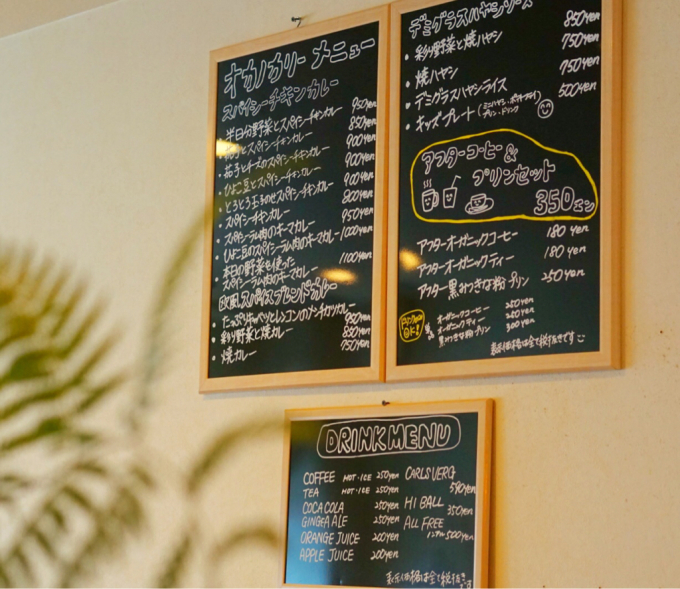 オカノカリー メニュー
スパイシーチキンカレー
半日分野菜とスパイシーチキンカレー 950yen
スパイシーチキンカレー 850yen
茄子とチーズのスパイシーチキンカレー 900yen
ひよこ豆とスパイシーチキンカレー 900yen
とろとろ玉子のせスパイシーチキンカレー 900yen
スパイシーチキンカレー 800yen
スパイシーラム肉のキーマカレー 950yen
ひよこ豆のスパイシーラム肉のキーマカレー 1000yen
本日の野菜を使った
スパイシーラム肉のキーマカレー 1100yen
欧風スパイスブレンドカレー
たっぷりキャベツとレンコンのメンチカツカレー 950yen
彩り野菜と焼カレー 850yen
焼カレー 750yen
デミグラスハヤシソース
彩り野菜と焼ハヤシ 850yen
焼ハヤシ 750yen
デミグラスハヤシライス 750yen
キッズプレート 500yen
プリン・ドリンク
アフターコーヒー&
プリンセット
350エン
アフターオーガニックコーヒー 180yen
アフターオーガニックティー 180yen
アフター黒みつきな粉プリン 250yen
OK!
単品
オーガニックコーヒー 250yen
オーガニックティー 250yen
黒みつきな粉プリン 300yen
表示価格は全て税抜きです
DRINK MENU
COFFEE HOT・ICE 250yen
TEA HOT・ICE 250yen
COCA COLA 250yen
GINGER ALE 250yen
ORANGE JUICE 200yen
APPLE JUICE 200yen
CARLSVERG
HI BALL
350yen
ALL FREE
500yen
表示価格は全て税抜き
です